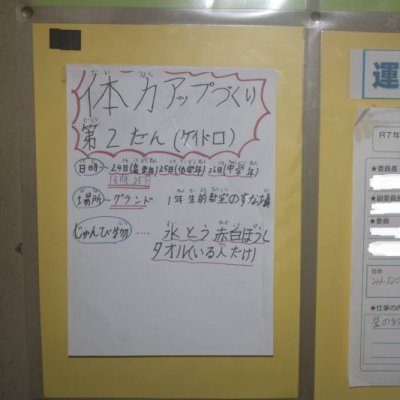 体力アップづくり
第2だん(ケイドロ)
日時…24日(高学年)25日(低学年)26日(中学年)
16時25分
場所…グランド 1年生前教室のすな場
じゅんび物……水とう 赤白ぼうし
タオル(いる人だけ)
運
R7年
★委員長
★副委員長
★委員
日時
★仕事の内